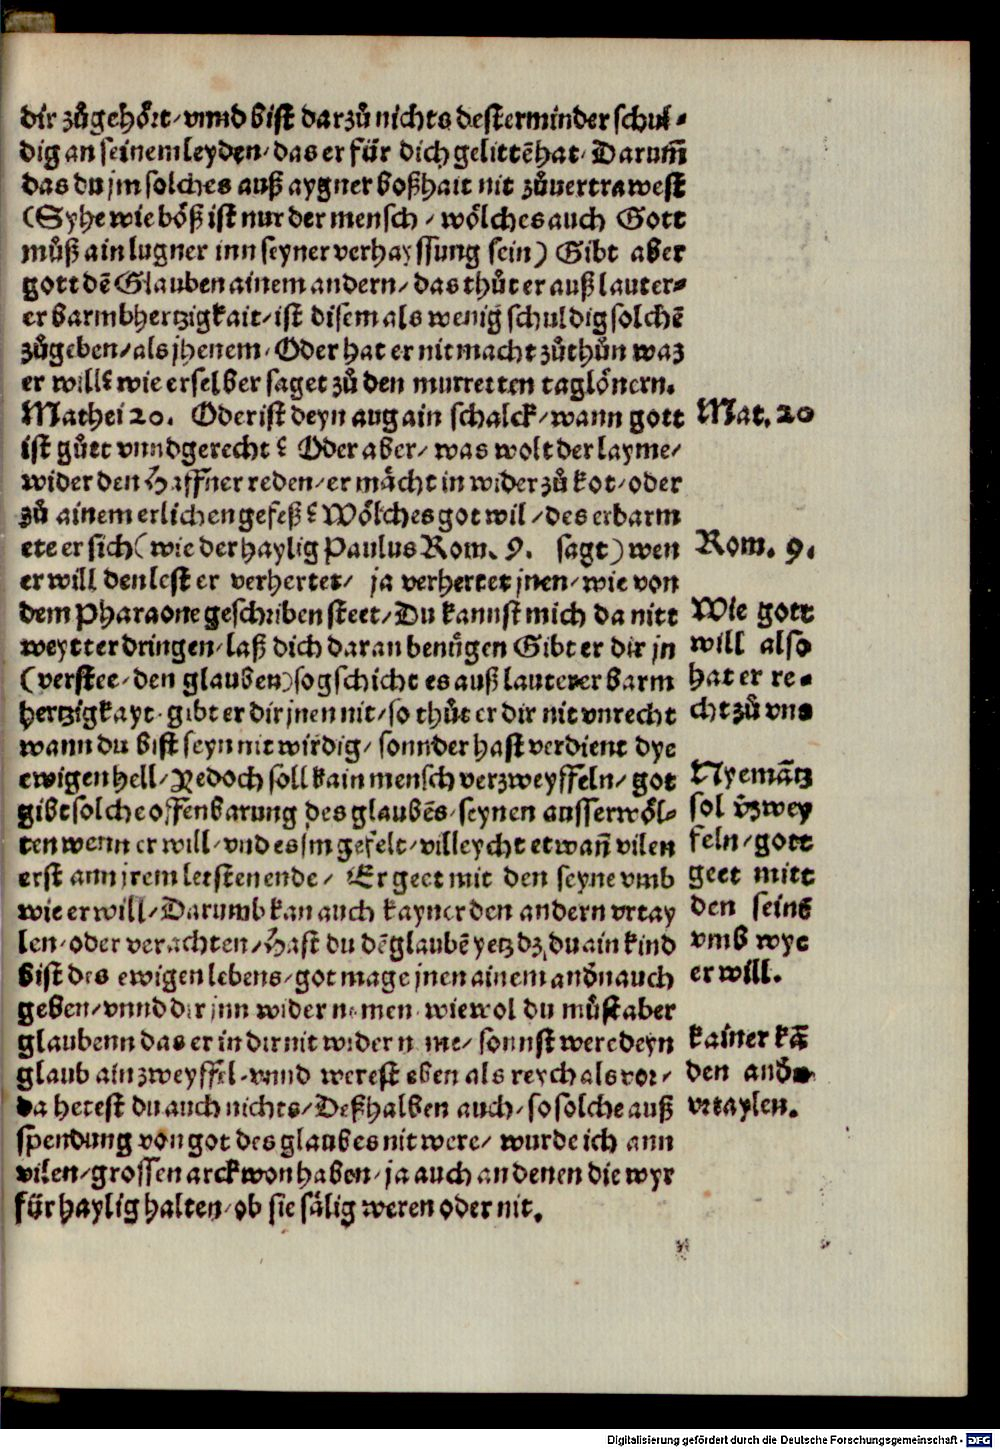 dir zůgehört/ vnnd bist darzů nichts desterminder schul-
dig an seinem leyden/ das er für dich gelittē hat/ Darum̄
das du jm solches auß aygner boßhait nit zůuertrawest
(Syhe wie böß ist nur der mensch/ wölches auch Gott
můß ain lugner inn seyner verhayssung sein) Gibt aber
gott dē Glauben ainem andern/ das thůt er auß lauter-
erbarmbhertzigkait/ ist disem als wenig schuldig solchē
zůgeben/ als jhenem/ Oder hat er nit macht zůthůn waz
er will? wie er selber saget zů den murretten taglönern.
Mathei 20. Oder ist deyn aug ain schalck/ wann gott
ist gůtt vnnd gerecht? Oder aber/ was wolt der layme/
wider den Haffner reden/ er mächt in wider zů kot/ oder
zů ainem erlichen gefeß? Wölches got wil/ des erbarm
ete er sich (wie der haylig Paulus Rom. 9. sagt) wen
er will den lest er verhertet/ ja verhertet jnen/ wie von
dem Pharaone geschriben steet/ Du kannst mich da nitt
weytter dringen/ laß dich daran benůgen Gibt er dir jn
(verstee/ den glauben) so gschicht es auß lauterer barm
hertzigkayt/ gibt er dir jnen nit/ so thůt er dir nit vnrecht
wann du bist seyn nit wirdig/ sonnder hast verdient dye
ewigen hell/ Yedoch soll kain mensch verzweyffeln/ got
gibt solche offenbarung des glaubēs/ seynen ausserwöl-
ten wenn er will/ vnd es jm gefelt/ villeycht etwan̄ vilen
erst ann jrem letsten ende/ Er geet mit den seyne vmb
wie er will/ Darumb kan auch kayner den andern vrtay
len/ oder verachten/ Hast du dē glaubē yetz dz du ain kind
bist des ewigen lebens/ got mag e jnen ainem andn̄ auch
geben/ vnnd dir jnn wider nemen/ wiewol du můst aber
glaubenn das er in dir nit wider neme/ sonnst were deyn
glaub ain zweyffel/ vnnd werest eben als reych als vor/
da hetest du auch nichts/ Deßhalben auch/ so solche auß
spendung von got des glaubes nit were/ wurde ich ann
vilen/ grossen arckwon haben/ ja auch an denen die wyr
für haylig halten/ ob sie sälig weren oder nit.
Mat. 20
Rom. 9.
Wie gott
will also
hat er re-
cht zů vns
Nyemātz
sol v̄zwey
feln/ gott
geet mitt
den seinē
vmb wye
er will.
kainer kā
den andn̄
vrtaylen.
Digitalisierung gefördert durch die Deutsche Forschungsgemeinschaft - DFG